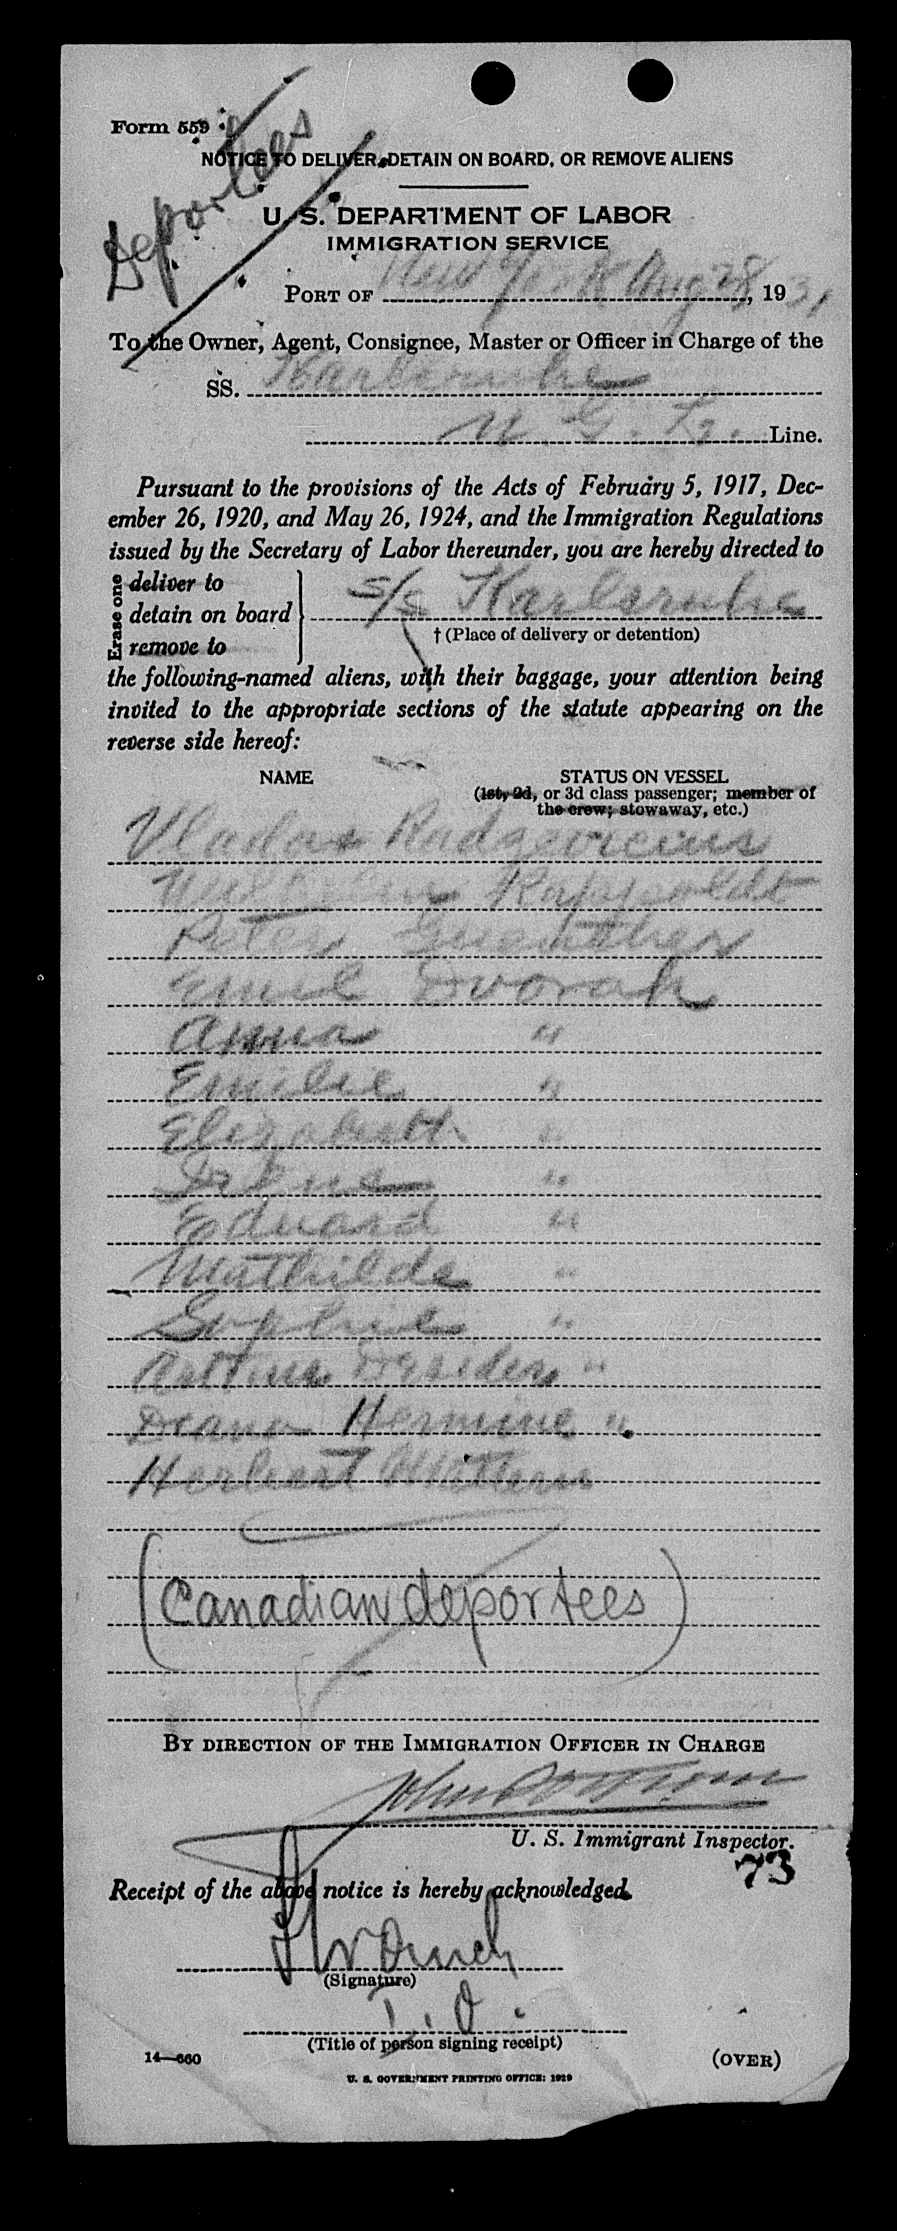 Form 559
Deportees
NOTICE TO DELIVER, DETAIN ON BOARD, OR REMOVE ALIENS
U. S. DEPARTMENT OF LABOR
IMMIGRATION SERVICE
PORT OF New York Aug 28, 1931
To the Owner, Agent, Consignee, Master or Officer in Charge of the
SS. Karlsruhe
N. G. L. Line.
Pursuant to the provisions of the Acts of February 5, 1917, Dec-
ember 26, 1920, and May 26, 1924, and the Immigration Regulations
issued by the Secretary of Labor thereunder, you are hereby directed to
Erase one
deliver to
detain on board
remove to
s/s Karlsruhe
† (Place of delivery or detention)
the following-named aliens, with their baggage, your attention being
invited to the appropriate sections of the statute appearing on the
reverse side hereof:
NAME STATUS ON VESSEL
(1st, 2d, or 3d class passenger; member of
the crew; stowaway, etc.)
Vladas Radzevicius
Rappoldt
Peter Guenther
Emil Dvorak
Anna "
Emilie "
Elizabeth "
Irene "
Eduard "
Mathilde "
Sophie "
"
Hermine "
Herbert
(Canadian deportees)
BY DIRECTION OF THE IMMIGRATION OFFICER IN CHARGE
John
U. S. Immigrant Inspector.
73
Receipt of the above notice is hereby acknowledged.
(Signature)
I. O.
(Title of person signing receipt)
14—660
(OVER)
U. S. GOVERNMENT PRINTING OFFICE: 1929